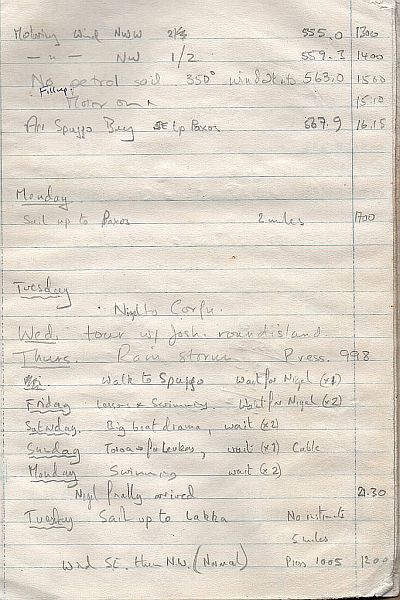 Motoring Wind NWW 2/3 555.0 1300
— " — NW 1/2 559.3 1400
No petrol sail 350° wind 563.0 1500
Filling
Motor on 1510
Arr Spuzzo Bay SE tp Paxos 567.9 16.15
Monday
Sail up to Paxos 2 miles 1700
Tuesday
Nigel to Corfu.
Wed. tour w/ Josh. round island.
Thurs. Rain storm Press. 998
Walk to Spuzzo Wait for Nigel (x1)
Friday & Swimming. Wait for Nigel (x2)
Saturday. Big boat drama, wait (x2)
Sunday for Levkas, wait (x1) Cable
Monday Swimming wait (x2)
Nigel finally arrived 21.30
Tuesday Sail up to Lakka No instruments
5 miles
Wind SE. then N.W. (Normal) Press 1005 1200